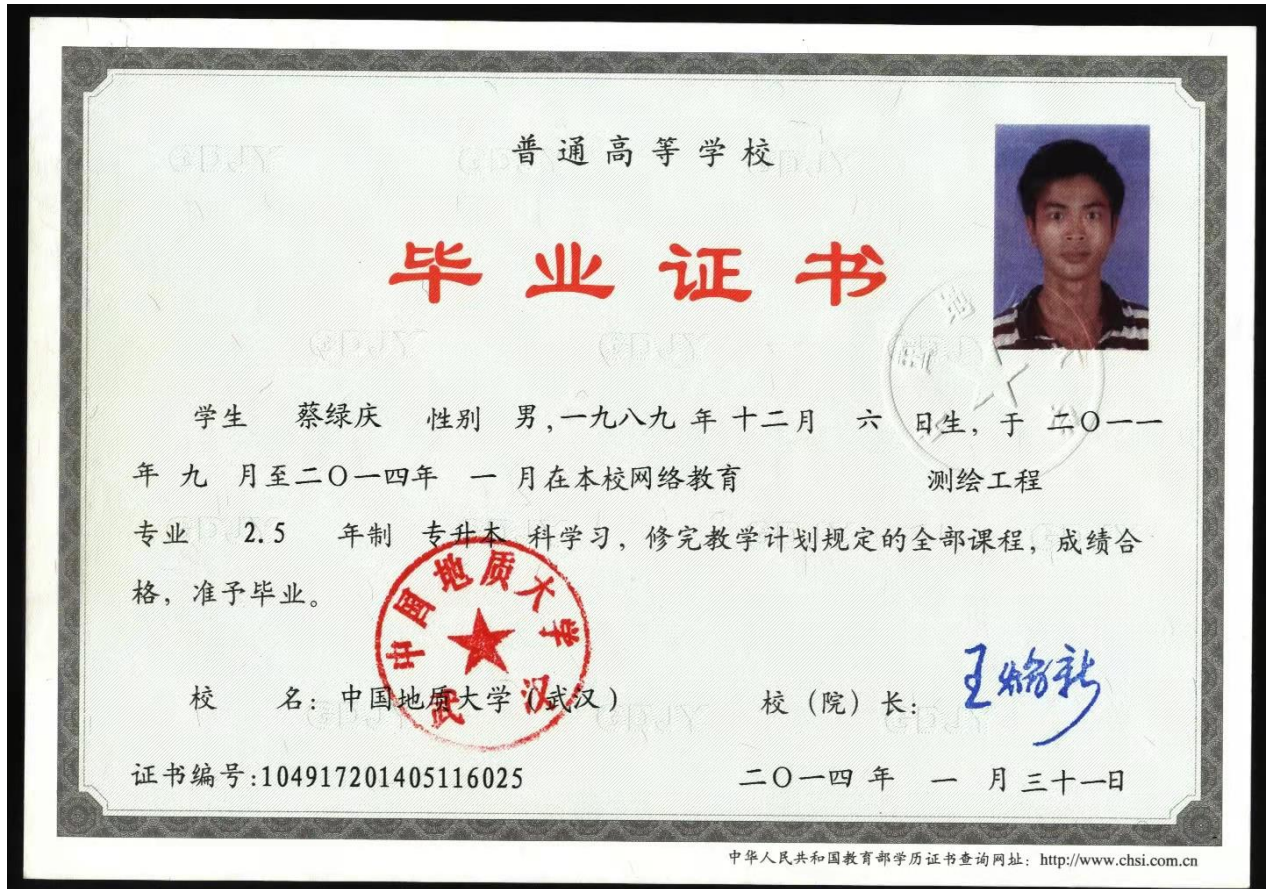 普通高等学校
毕业证书
学生 蔡绿庆 性别 男,一九八九 年 十二月 六 日生, 于 二〇一一
年 九 月至二〇一四年 一 月在本校网络教育 测绘工程
专业 2.5 年制 专升本 科学习, 修完教学计划规定的全部课程, 成绩合
格, 准予毕业。
中国地质大学
武汉
校 名: 中国地质大学 (武汉)
校 (院) 长: 王焰新
证书编号:104917201405116025
二〇一四 年 一 月 三十一日
中华人民共和国教育部学历证书查询网址: http://www.chsi.com.cn